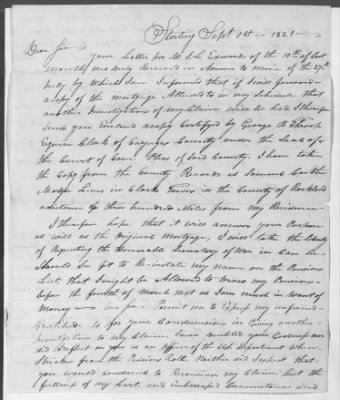 Sterling Sept 1st 1821
Dear Sir
your Letter per Mr J L Edwards of the 10th of last
month was duly Received in Answer to mine of the 27th
July by Which I am Informed that if I will forward
a Copy of the mortgage Alluded to in my Schedule that
another Investigation of my Claim will be had I therefore
Send you Enclosed a Copy Certified by George B Throop
Esquire Clerk of Cayuga County under the Seal of
the Court of Com. Pleas of Said County, I have taken
the Copy from the County Records as
Lives in Clark Town in the County of Rockland
a distance of three hundred Miles from my Residence
I therefore hope that it will answer your Purpose
as well as the Original Mortgage, I will take the Liberty
of Requesting the Honorable Secretary of War in Case he
Should See fit to Reinstate my name on the Pension
List that I might be Allowed to Draw my Pension
before the fourth of March next as I am much in Want of
Money — Sir — Permit me to Express my unfeigned
Gratitude to for your Condescension in Giving another
Investigation to my Claim. I never doubted your Goodness nor
did I reflect on you as an Officer of the War Department When
Stricken from the Pension Roll. Neither did I expect that
you would condescend to Reexamine my Claim but the
fullness of my heart and embarrassed Circumstances and